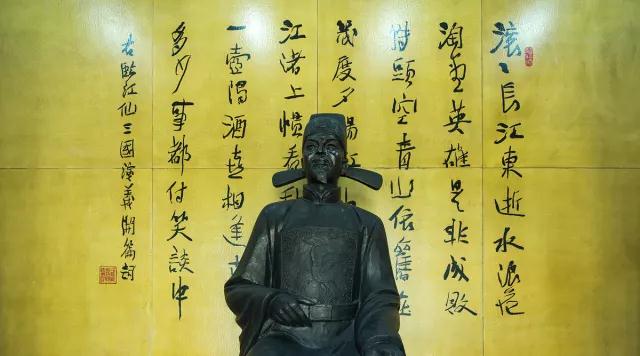 滚〻長江東逝水浪花
淘盡英雄是非成敗
轉頭空青山依舊在
幾度夕陽紅
江渚上慣看
一壺濁酒喜相逢
多少事都付笑談中
右臨江仙三國演義開篇詞